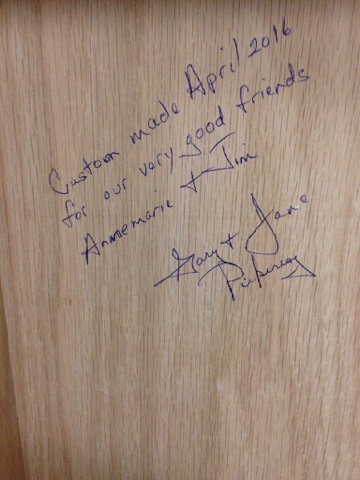 Custom made April 2016
for our very good friends
Annemarie & Jim
Gary & Jane